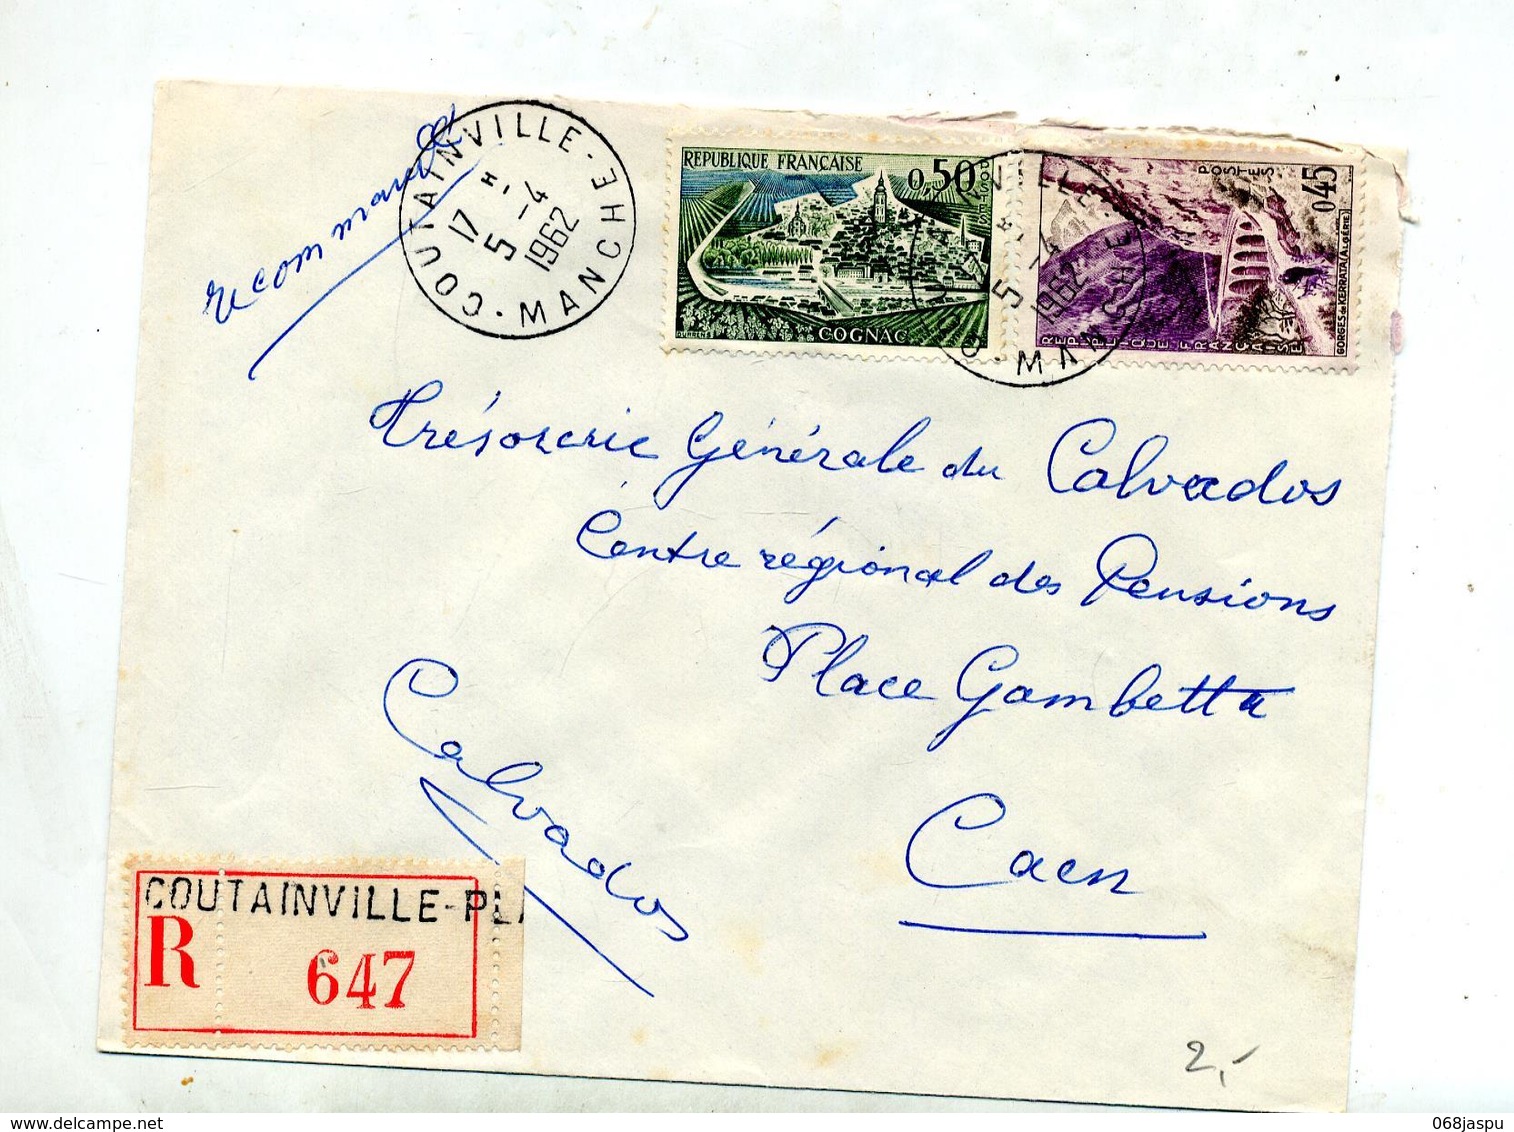 recommandé
COUTAINVILLE - MANCHE
17 H
5 - 4
1962
REPUBLIQUE FRANÇAISE
0,50
POSTES
COGNAC
POSTES
0,45
GORGES de KERRATA (ALGÉRIE)
REPUBLIQUE FRANCAISE
5 - 4
1962
Trésorerie Générale du Calvados
Centre régional des Pensions
Place Gambetta
Caen
Calvados
COUTAINVILLE-PLA
R
647
2,-
068jaspu